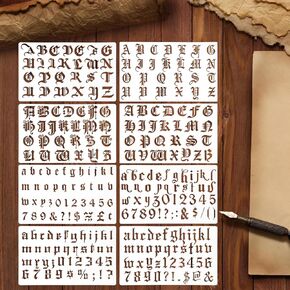 A B C D E F G
H I J K L M N
O P Q R S T
U V W X Y Z
A B C D E F G
H I J K L M N
O P Q R S T
U V W X Y Z
A B C D E F G
H I J K L M N
O P Q R S T
U V W X Y Z
A B C D E F G
H I J K L M N
O P Q R S T U
V W X Y Z
a b c d e f g h i j k l
m n o p q r s t u v
w x y z 0 1 2 3 4 5 6
7 8 9 & ? ! $ £ ¢
a b c d e f g h i j k l
m n o p q r s t u v
w x y z 0 1 2 3 4 5
6 7 8 9 ! ? : ; & $ / ( )
a b c d e f g h i j k l
m n o p q r s t u v
w x y z 0 1 2 3 4 5
6 7 8 9 0 $ % ; ! ?
a b c d e f g h i j k l
m n o p q r s t u v
w x y z 0 1 2 3 4 5
6 7 8 9 ? ! . $ @ &